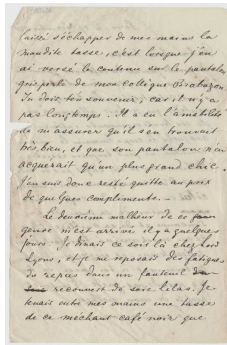 laissé s'échapper de mes mains la
maudite tasse, c'est lorsque j'en
ai versé le contenu sur le pantalon
de mon collègue Brabazon
tu dois t'en souvenir, car il n'y a
pas longtemps. Il a eu l'amabilité
de m'assurer qu'il s'en trouvait
très bien, et que son pantalon n'en
acquerait qu'un plus grand chic.
J'en suis donc resté quitte au prix
de quelques compliments. —
Le deuxième malheur de ce
genre m'est arrivé il y a quelques
jours. Je dînais ce soir là chez
Lyons, et je me reposais des fatigues
du repas dans un fauteuil
recouvert de soie lilas. Je
tenais entre mes mains une tasse
de ce méchant café noir que